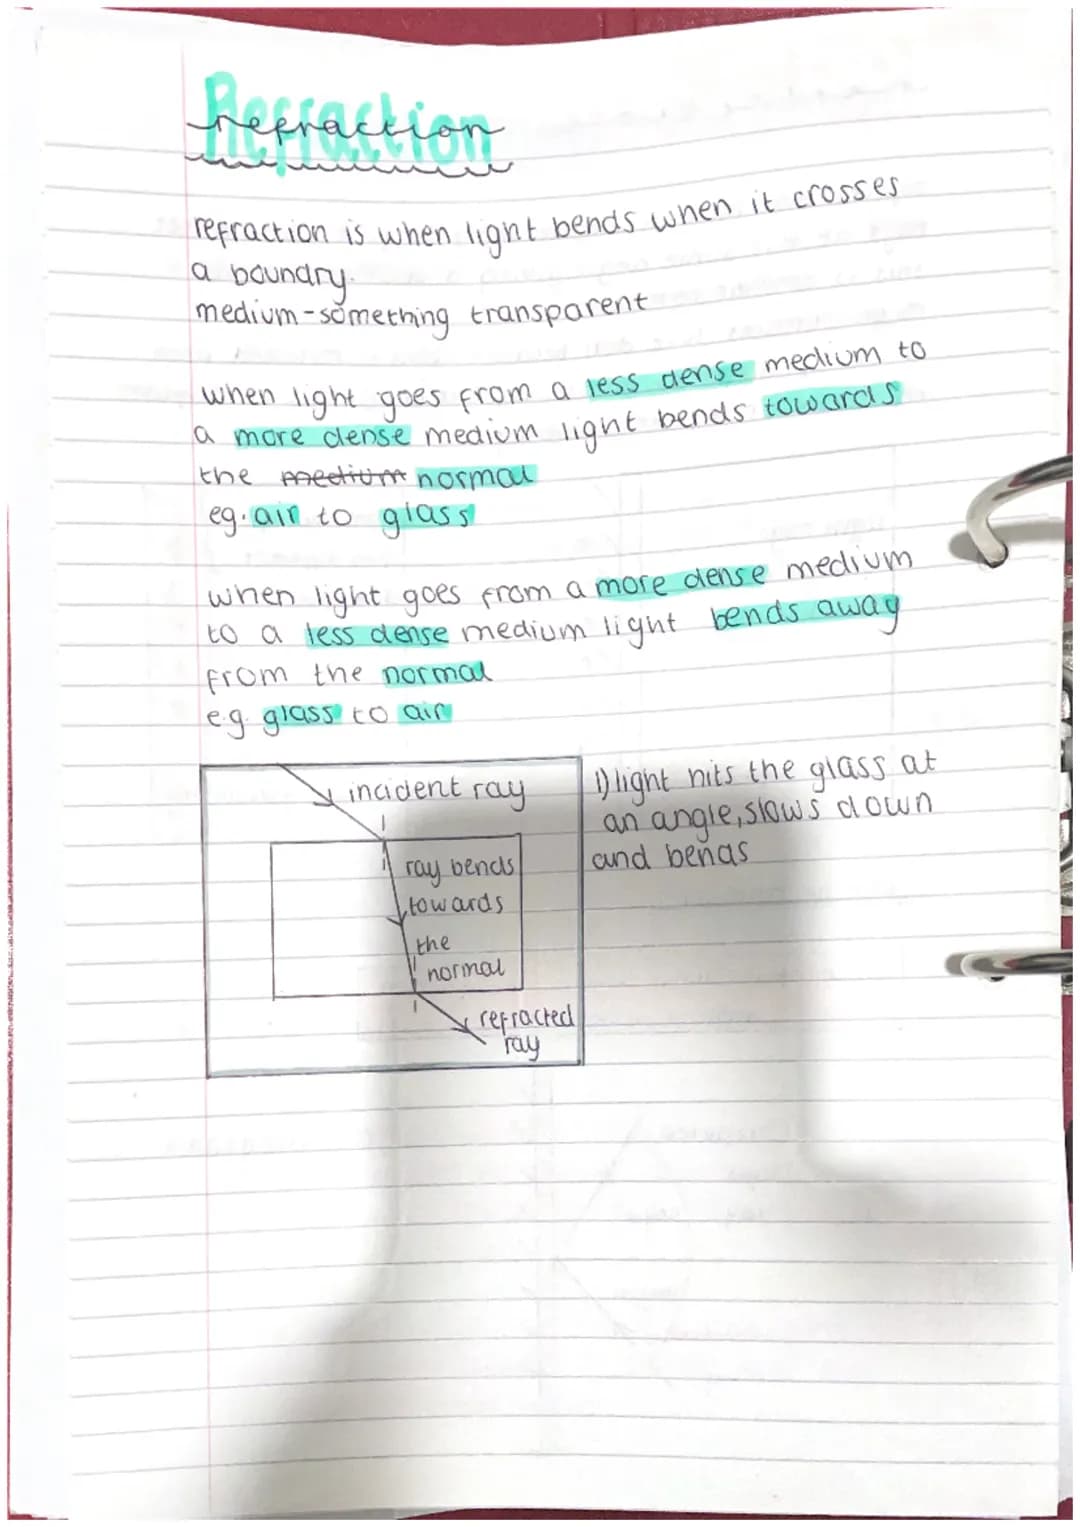 Refraction
refraction is when light bends when it crosses
a boundry.
medium - something transparent
when light goes from a less dense medium to
a more dense medium light bends towards
the medium normal
eg. air to glass
when light goes from a more dense medium
to a less dense medium light bends away
from the normal
e.g. glass to air
incident ray
ray bends
towards
the
normal
refracted
ray
1) light hits the glass at
an angle, slows down
and bends